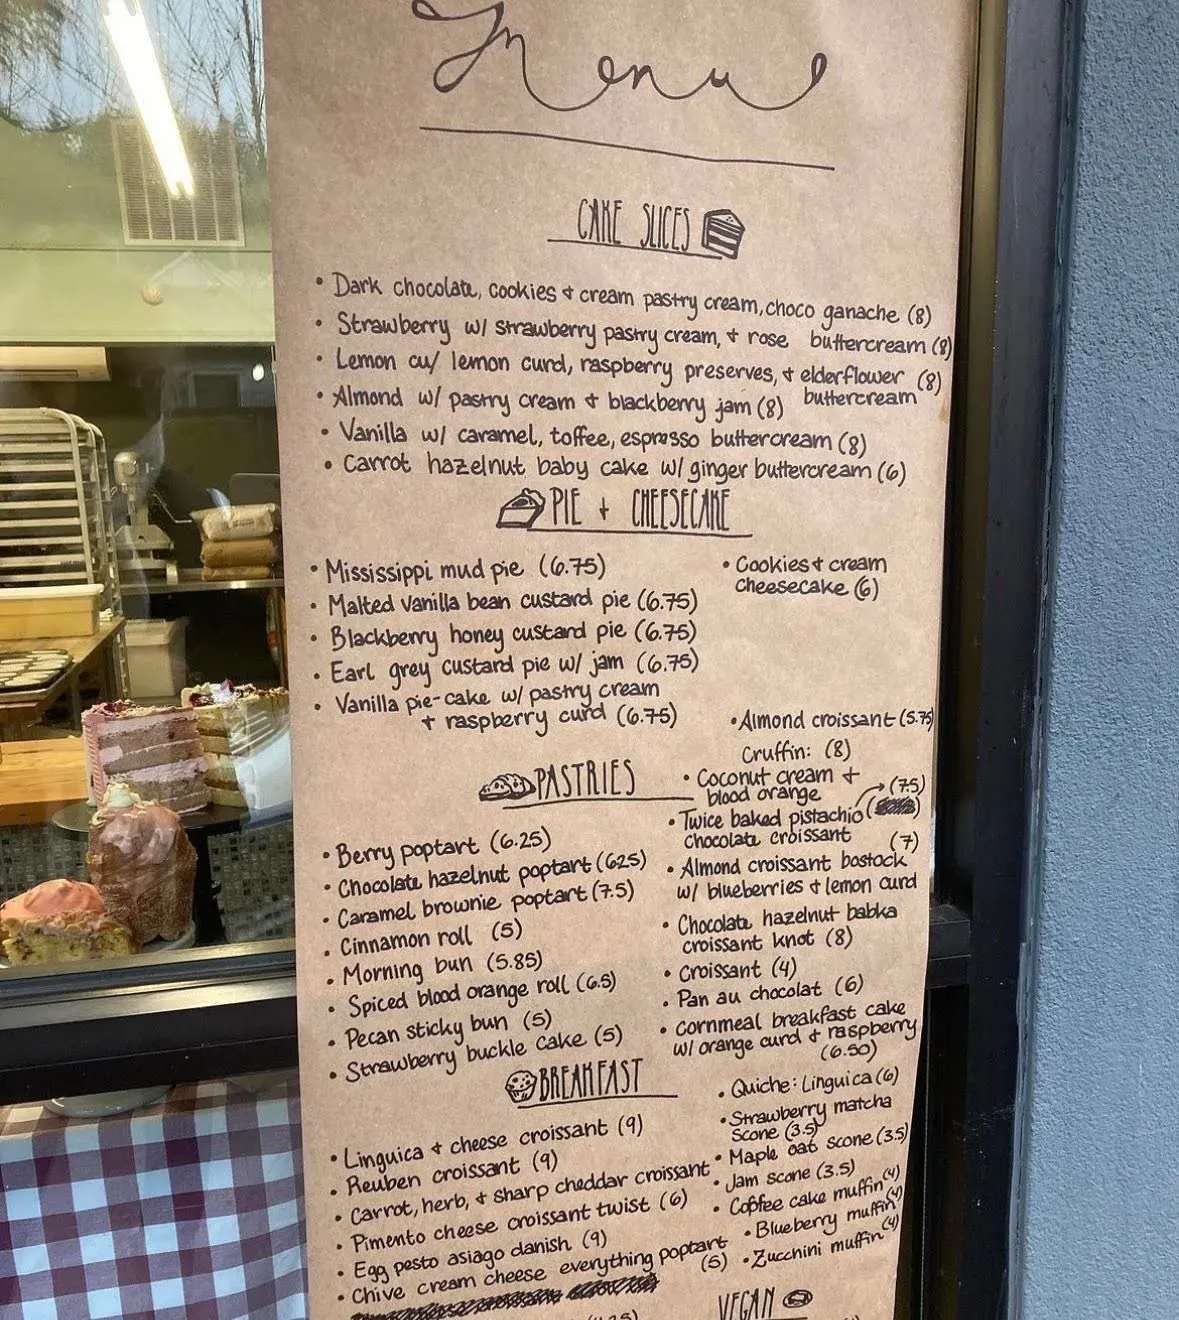 Menu
CAKE SLICES
• Dark chocolate, cookies + cream pastry cream, choco ganache (8)
• Strawberry w/ strawberry pastry cream, + rose buttercream (8)
• Lemon w/ lemon curd, raspberry preserves, + elderflower (8)
buttercream
• Almond w/ pastry cream + blackberry jam (8)
• Vanilla w/ caramel, toffee, espresso buttercream (8)
• Carrot hazelnut baby cake w/ ginger buttercream (6)
PIE + CHEESECAKE
• Mississippi mud pie (6.75)
• Malted vanilla bean custard pie (6.75)
• Blackberry honey custard pie (6.75)
• Earl grey custard pie w/ jam (6.75)
• Vanilla pie-cake w/ pastry cream
+ raspberry curd (6.75)
• Cookies + cream
cheesecake (6)
PASTRIES
• Berry poptart (6.25)
• Chocolate hazelnut poptart (625)
• Caramel brownie poptart (7.5)
• Cinnamon roll (5)
• Morning bun (5.85)
• Spiced blood orange roll (6.5)
• Pecan sticky bun (5)
• Strawberry buckle cake (5)
• Almond croissant (5.75)
Cruffin: (8)
• Coconut cream +
blood orange
• Twice baked pistachio (7.5)
chocolate croissant
• Almond croissant bostock (7)
w/ blueberries + lemon curd
• Chocolate hazelnut babka
croissant knot (8)
• Croissant (4)
• Pan au chocolat (6)
• Cornmeal breakfast cake
w/ orange curd + raspberry
(6.50)
BREAKFAST
• Linguica + cheese croissant (9)
• Reuben croissant (9)
• Carrot, herb, + sharp cheddar croissant
• Pimento cheese croissant twist (6)
• Egg pesto asiago danish (9)
• Chive cream cheese everything poptart
(5)
• Quiche: Linguica (6)
• Strawberry matcha
Scone (3.5)
• Maple oat scone (3.5)
• Jam scone (3.5)
• Coffee cake muffin (4)
• Blueberry muffin (4)
• Zucchini muffin (4)
VEGAN